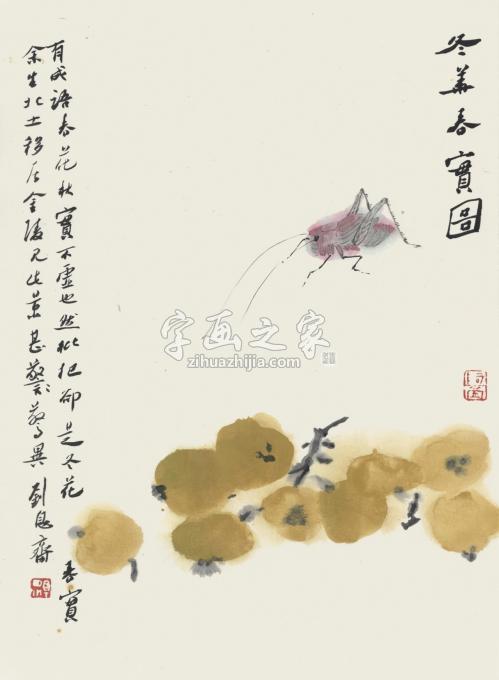 冬華春實圖
有成语春花秋實不虚也然枇杷却是冬花春實
余生北土移居金陵见此景甚驚異 劉息齋
字画之家
zihuazhijia.com